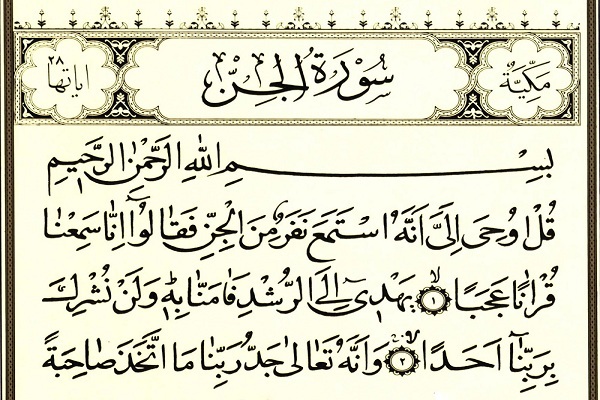 مَكِّيَّةٌ سُورَةُ الْجِنِّ اٰيَاتُهَا ٢٨
بِسْمِ اللّٰهِ الرَّحْمٰنِ الرَّح۪يمِ
قُلْ اُو۫حِيَ اِلَيَّ اَنَّهُ اسْتَمَعَ نَفَرٌ مِنَ الْجِنِّ فَقَالُٓوا اِنَّا سَمِعْنَا
قُرْاٰنًا عَجَبًاۙ ﴿١﴾ يَهْد۪ٓي اِلَى الرُّشْدِ فَاٰمَنَّا بِه۪ۜ وَلَنْ نُشْرِكَ
بِرَبِّنَٓا اَحَدًاۙ ﴿٢﴾ وَاَنَّهُ تَعَالٰى جَدُّ رَبِّنَا مَا اتَّخَذَ صَاحِبَةً